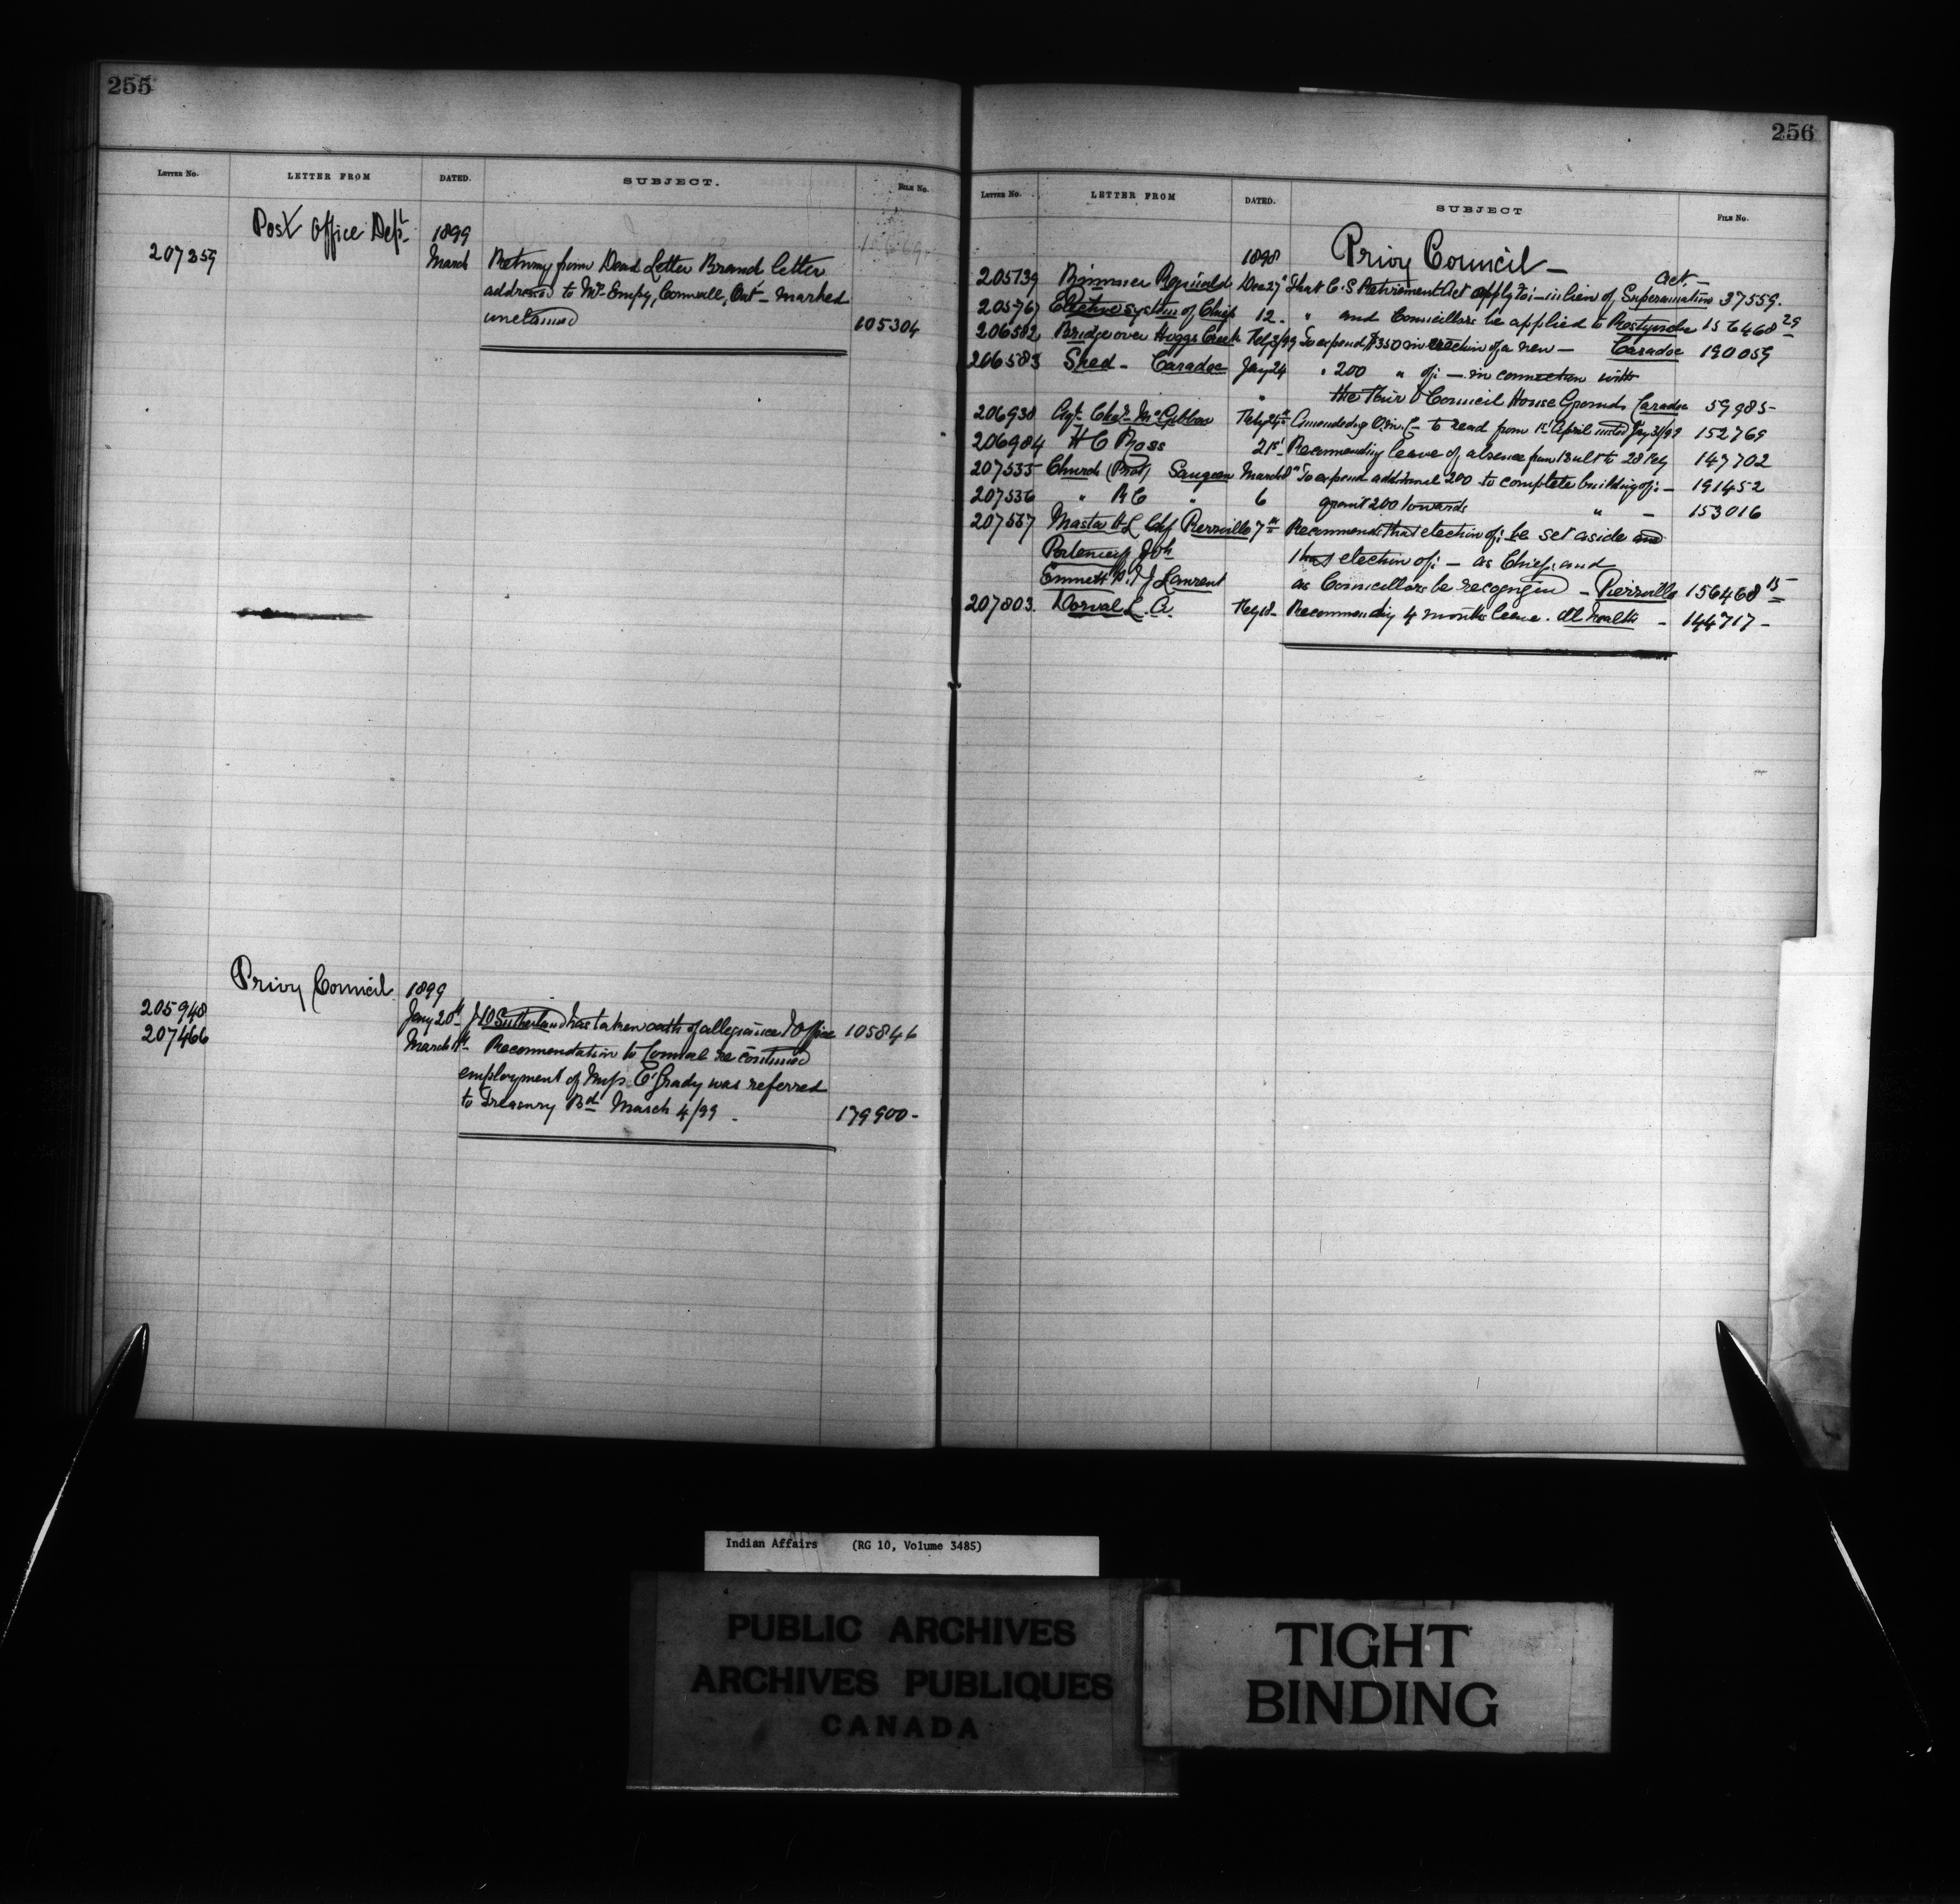 255
LETTER NO. LETTER FROM DATED. SUBJECT. FILE NO.
Post Office Dept 1899
207359 March Returng from Dead Letter Brand letter
addressed to Mr Empy, Cornwall, Ont - marked
unclaimed 105304
Privy Council 1899
205948 Jany 20th J H O Sutherland has taken oath of allegiance & Office 105846
207466 March Recommendation to Council re continued
employment of Miss E Grady was referred
to Treasury Bd March 4/99 . 179900 -
256
LETTER NO. LETTER FROM DATED. SUBJECT FILE NO.
1898 Privy Council -
Act. -
205739 Rimmer Reginald Dec 27" That C. S Retirement Act apply to :- in lieu of Superannuation 37559.
205767 Elective system of Chiefs 12. " and Councillors be applied to 156468 29
206582 Bridge over Hoggs Creek Feb 3/99 To expend $350 in erection of a new - Caradoc 190059
206583 Shed - Caradoc Jany 24 " 200 " of: - in connection with
" the Fair & Council House Grounds Caradoc 59985-
206938 Agt. McGibbon Feby 21st Amending O. in C- to read from 1st April until Jany 31/99 152769
206984 H C Ross 21st Recommending leave of absence from 13 ult to 28 Feby 147702
207535 Church (Prot) Saugeen March " To expend additional 200 to complete building of: - 191452
207536 " R C " 6 grant 200 towards " - 153016
207537 Masta H L Chf Pierrville 7th Recommends that election of: be set aside and
that election of: - as Chief, and
Emmett P. & J Laurent as Councillors be recognized - Pierrville 156468 15
207803. Dorval L. A. Feby 18 - Recommending 4 months leave. Ill health - 144717 -
Indian Affairs (RG 10, Volume 3485)
PUBLIC ARCHIVES
ARCHIVES PUBLIQUES
CANADA
TIGHT
BINDING